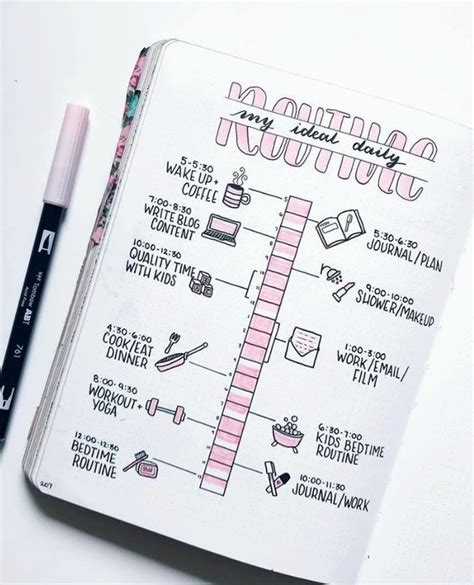 ROUTINE
my ideal daily
5-5:30
WAKE UP +
COFFEE
5:30-6:30
JOURNAL/PLAN
7:00-8:30
WRITE BLOG
CONTENT
9:00-10:00
SHOWER/MAKEUP
10:00-12:30
QUALITY TIME
WITH KIDS
1:00-3:00
WORK/EMAIL/
FILM
4:30-6:00
COOK/EAT
DINNER
6:30-7:00
KIDS BEDTIME
ROUTINE
8:00-9:30
WORKOUT+
YOGA
10:00-11:30
JOURNAL/WORK
12:00-12:30
BEDTIME
ROUTINE
207
Tombow ABT
761